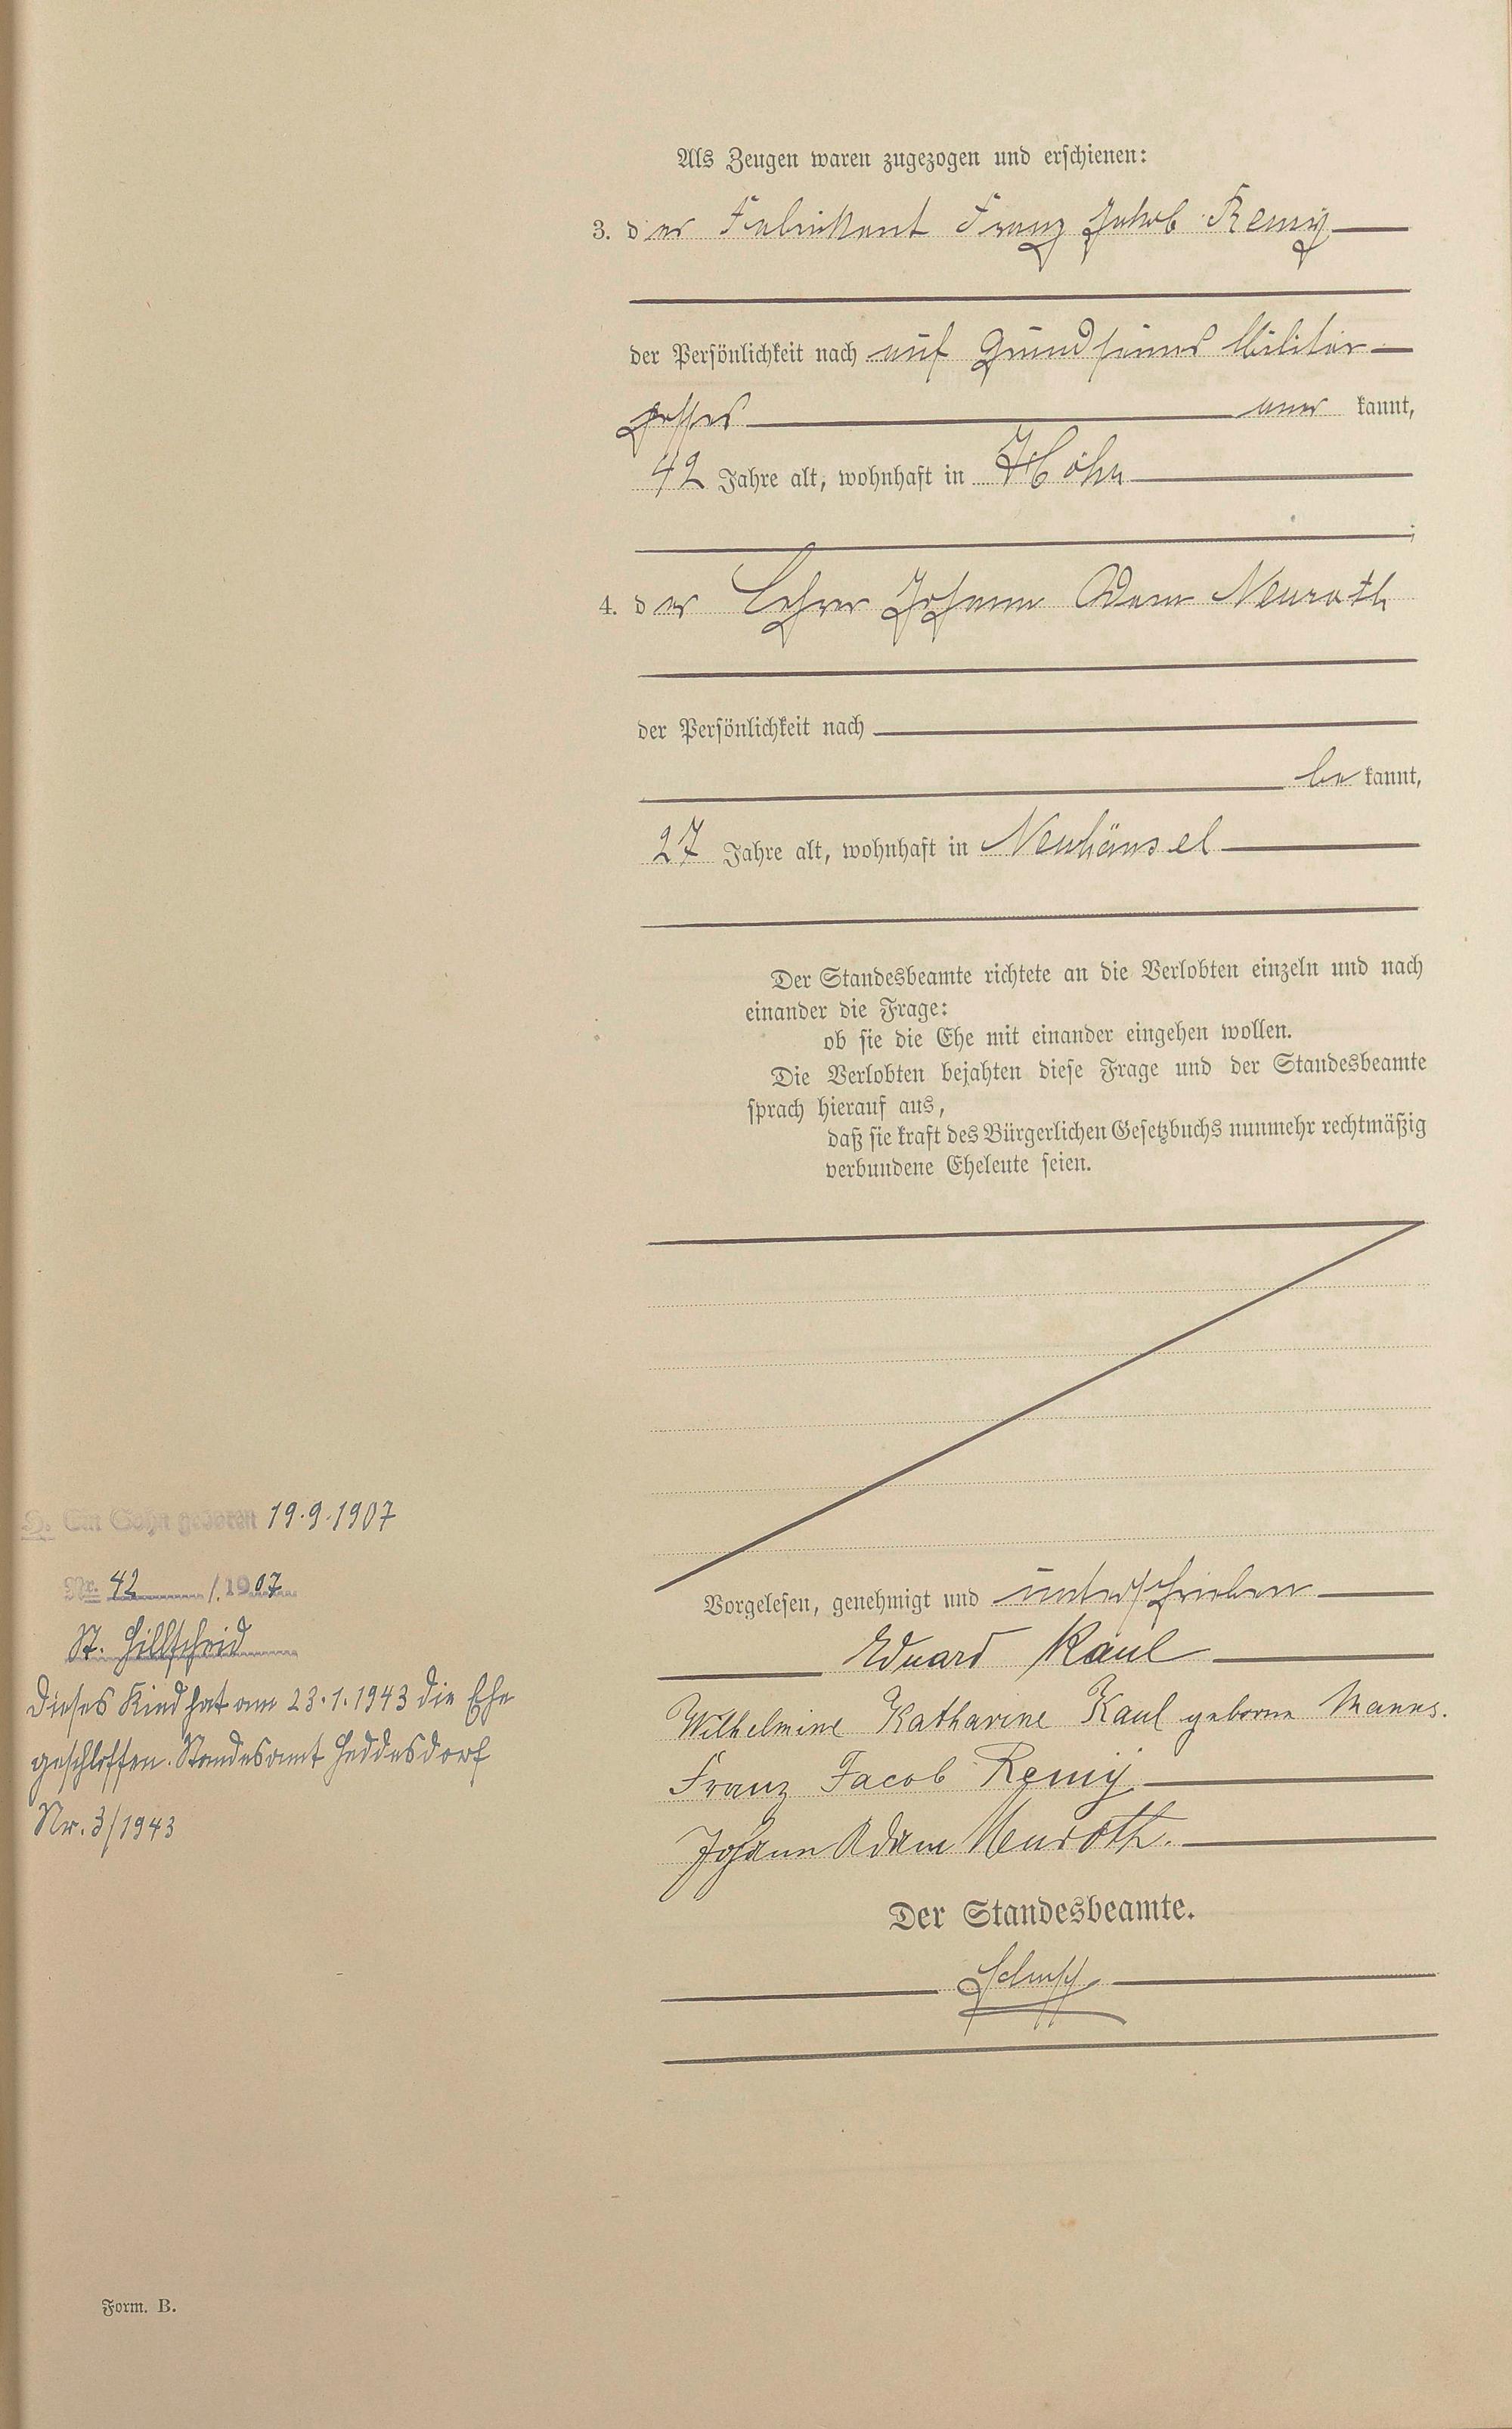 Als Zeugen waren zugezogen und erschienen:
3. der Fabrikant Franz Jakob Remy
der Persönlichkeit nach auf Grund seines Militär-
passes aner kannt,
42 Jahre alt, wohnhaft in Höhn
4. der Lehrer Johann Adam Neuroth
der Persönlichkeit nach
be kannt,
27 Jahre alt, wohnhaft in Neuhäusel
Der Standesbeamte richtete an die Verlobten einzeln und nach
einander die Frage:
ob sie die Ehe mit einander eingehen wollen.
Die Verlobten bejahten diese Frage und der Standesbeamte
sprach hierauf aus,
daß sie kraft des Bürgerlichen Gesetzbuchs nunmehr rechtmäßig
verbundene Eheleute seien.
Vorgelesen, genehmigt und unterschrieben
Eduard Kaul
Wilhelmine Katharine Kaul geborne Manns.
Franz Jacob Remy
Johann Adam Neuroth.
Der Standesbeamte.
H. Ein Sohn geboren 19.9.1907
Nr. 42 /1907
St. Hillscheid
Dieses Kind hat am 23.1.1943 die Ehe
geschlossen. Standesamt Heddesdorf
Nr. 3/1943
Form. B.